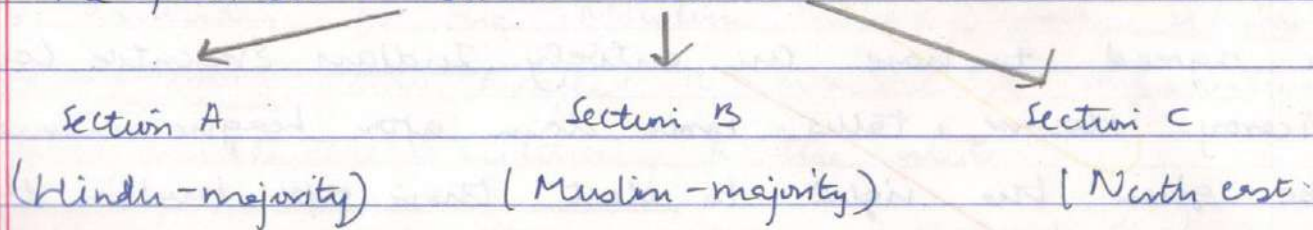 Section A Section B Section C
(Hindu-majority) (Muslim-majority) (North east